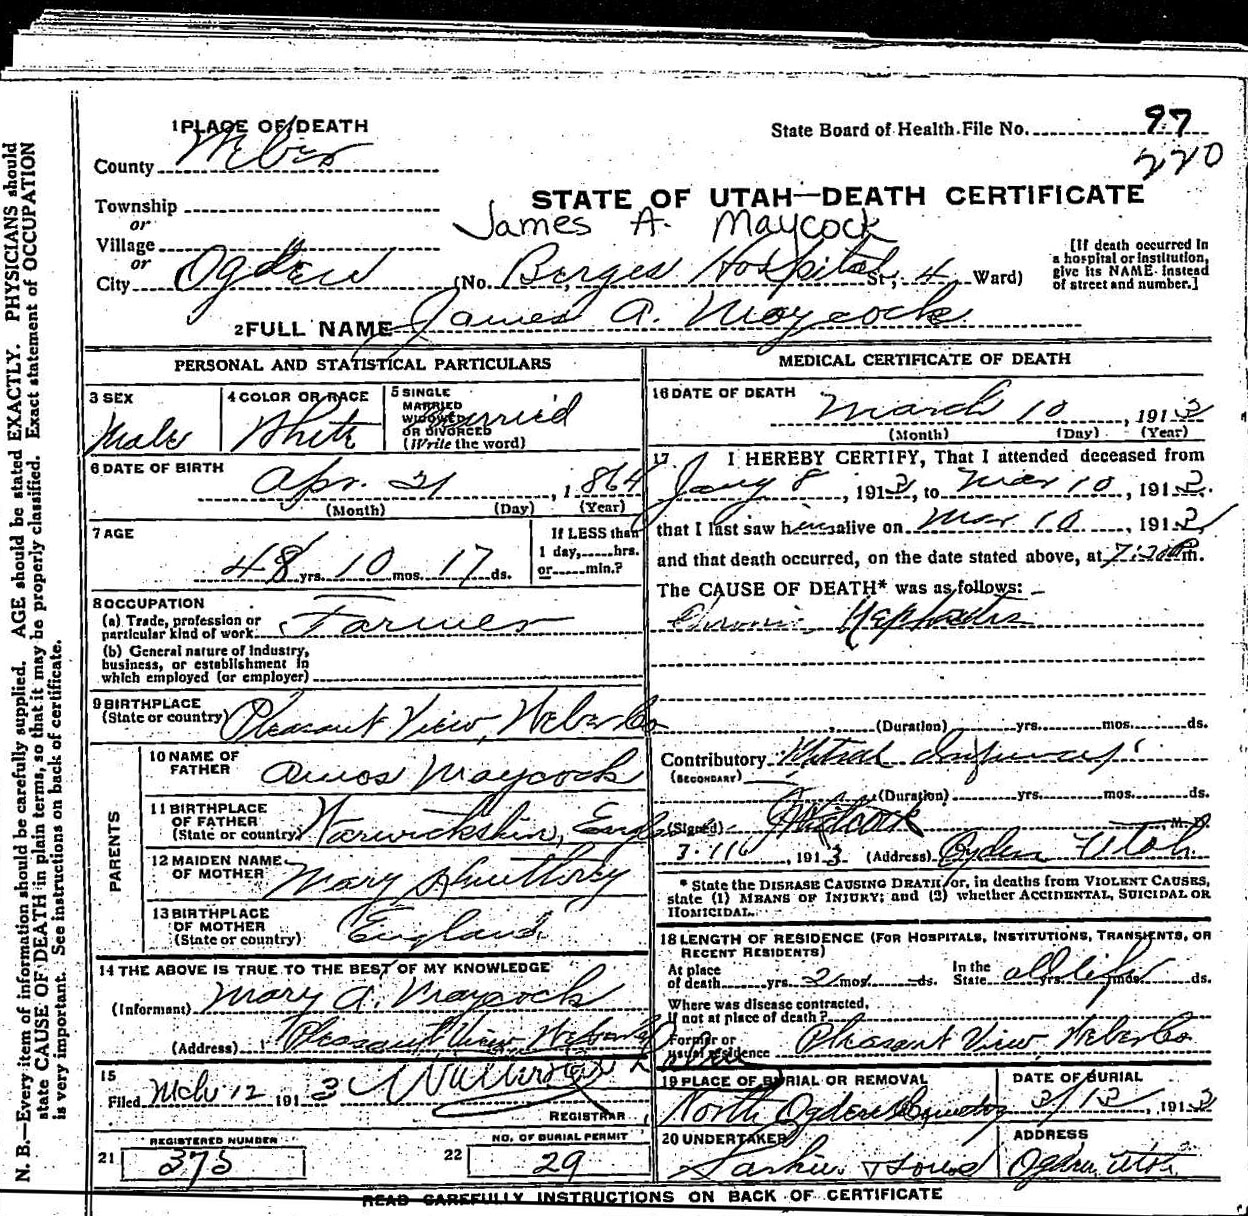 1 PLACE OF DEATH
State Board of Health File No. 97
220
County Weber
STATE OF UTAH—DEATH CERTIFICATE
Township
or
James A. Maycock
Village
or
City Ogden (No. Hospital St; 4 Ward)
[If death occurred in
a hospital or institution,
give its NAME instead
of street and number.]
2 FULL NAME James A. Maycock
PERSONAL AND STATISTICAL PARTICULARS
3 SEX
Male
4 COLOR OR RACE
White
5 SINGLE
MARRIED
WIDOWED
OR DIVORCED
(Write the word)
Married
6 DATE OF BIRTH
Apr. 21, 1864
(Month) (Day) (Year)
7 AGE
48 yrs. 10 mos. 17 ds.
If LESS than
1 day,......hrs.
or......min.?
8 OCCUPATION
(a) Trade, profession or
particular kind of work Farmer
(b) General nature of Industry,
business, or establishment in
which employed (or employer)
9 BIRTHPLACE
(State or country) Pleasant View, Weber Co
PARENTS
10 NAME OF
FATHER Amos Maycock
11 BIRTHPLACE
OF FATHER
(State or country) Warwickshire, England
12 MAIDEN NAME
OF MOTHER Mary
13 BIRTHPLACE
OF MOTHER
(State or country) England
14 THE ABOVE IS TRUE TO THE BEST OF MY KNOWLEDGE
(Informant) Mary A. Maycock
(Address) Pleasant View Weber Co
15
Filed Mch 12 1913
REGISTRAR
REGISTERED NUMBER
21 375
NO. OF BURIAL PERMIT
22 29
MEDICAL CERTIFICATE OF DEATH
16 DATE OF DEATH
March 10, 1913
(Month) (Day) (Year)
17 I HEREBY CERTIFY, That I attended deceased from
Jany 8, 1913, to Mar 10, 1913.
that I last saw him alive on Mar 10, 1913,
and that death occurred, on the date stated above, at 7:20 P m.
The CAUSE OF DEATH* was as follows:
Chronic Nephritis
(Duration) yrs. mos. ds.
Contributory Mitral
(SECONDARY)
(Duration) yrs. mos. ds.
(Signed) M. D.
1913 (Address) Ogden Utah
* State the DISEASE CAUSING DEATH, or, in deaths from VIOLENT CAUSES,
state (1) MEANS OF INJURY; and (2) whether ACCIDENTAL, SUICIDAL OR
HOMICIDAL.
18 LENGTH OF RESIDENCE (FOR HOSPITALS, INSTITUTIONS, TRANSIENTS, OR
RECENT RESIDENTS)
At place
of death yrs. 2 mos. ds. In the
State all life yrs. mos. ds.
Where was disease contracted,
If not at place of death?
Former or
usual residence Pleasant View, Weber Co
19 PLACE OF BURIAL OR REMOVAL
North Ogden Cemetery
DATE OF BURIAL
3/13, 1913
20 UNDERTAKER
Larkin & Sons
ADDRESS
Ogden Utah
READ CAREFULLY INSTRUCTIONS ON BACK OF CERTIFICATE
N. B.—Every item of information should be carefully supplied. AGE should be stated EXACTLY. PHYSICIANS should
state CAUSE OF DEATH in plain terms, so that it may be properly classified. Exact statement of OCCUPATION
is very important. See instructions on back of certificate.